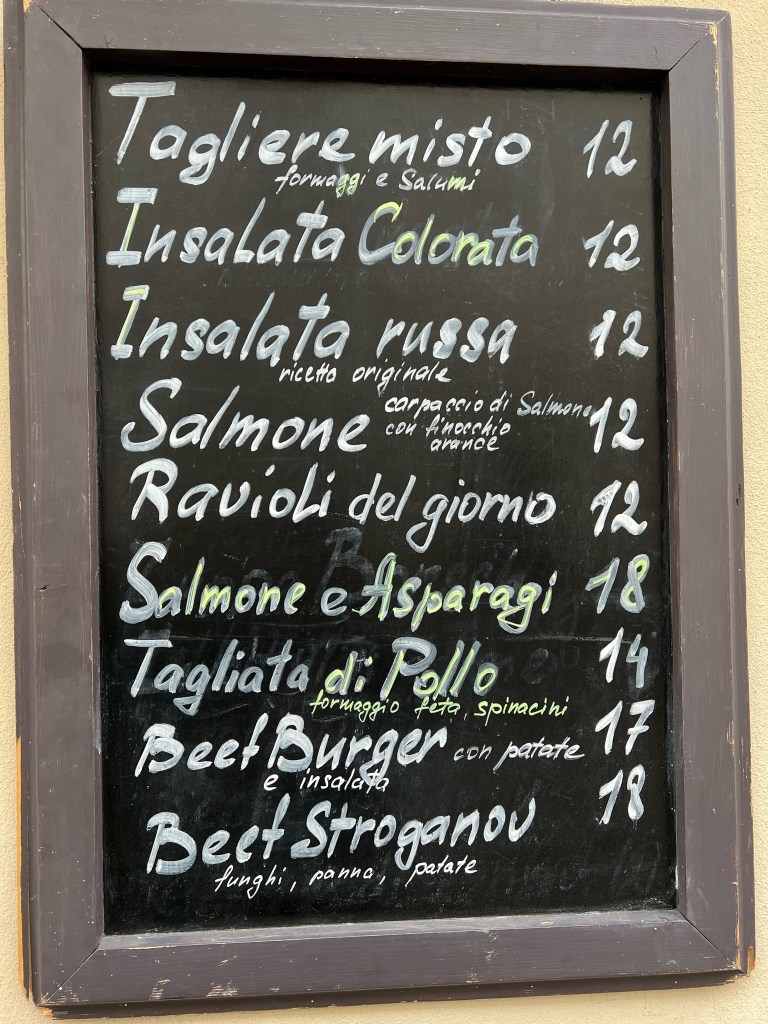 Tagliere misto 12
formaggi e Salumi
Insalata Colorata 12
Insalata russa 12
ricetta originale
Salmone carpaccio di Salmone 12
con finocchio
arance
Ravioli del giorno 12
Salmone e Asparagi 18
Tagliata di Pollo 14
formaggio feta, spinacini
Beef Burger con patate 17
e insalata
Beef Stroganov 18
funghi, panna, patate